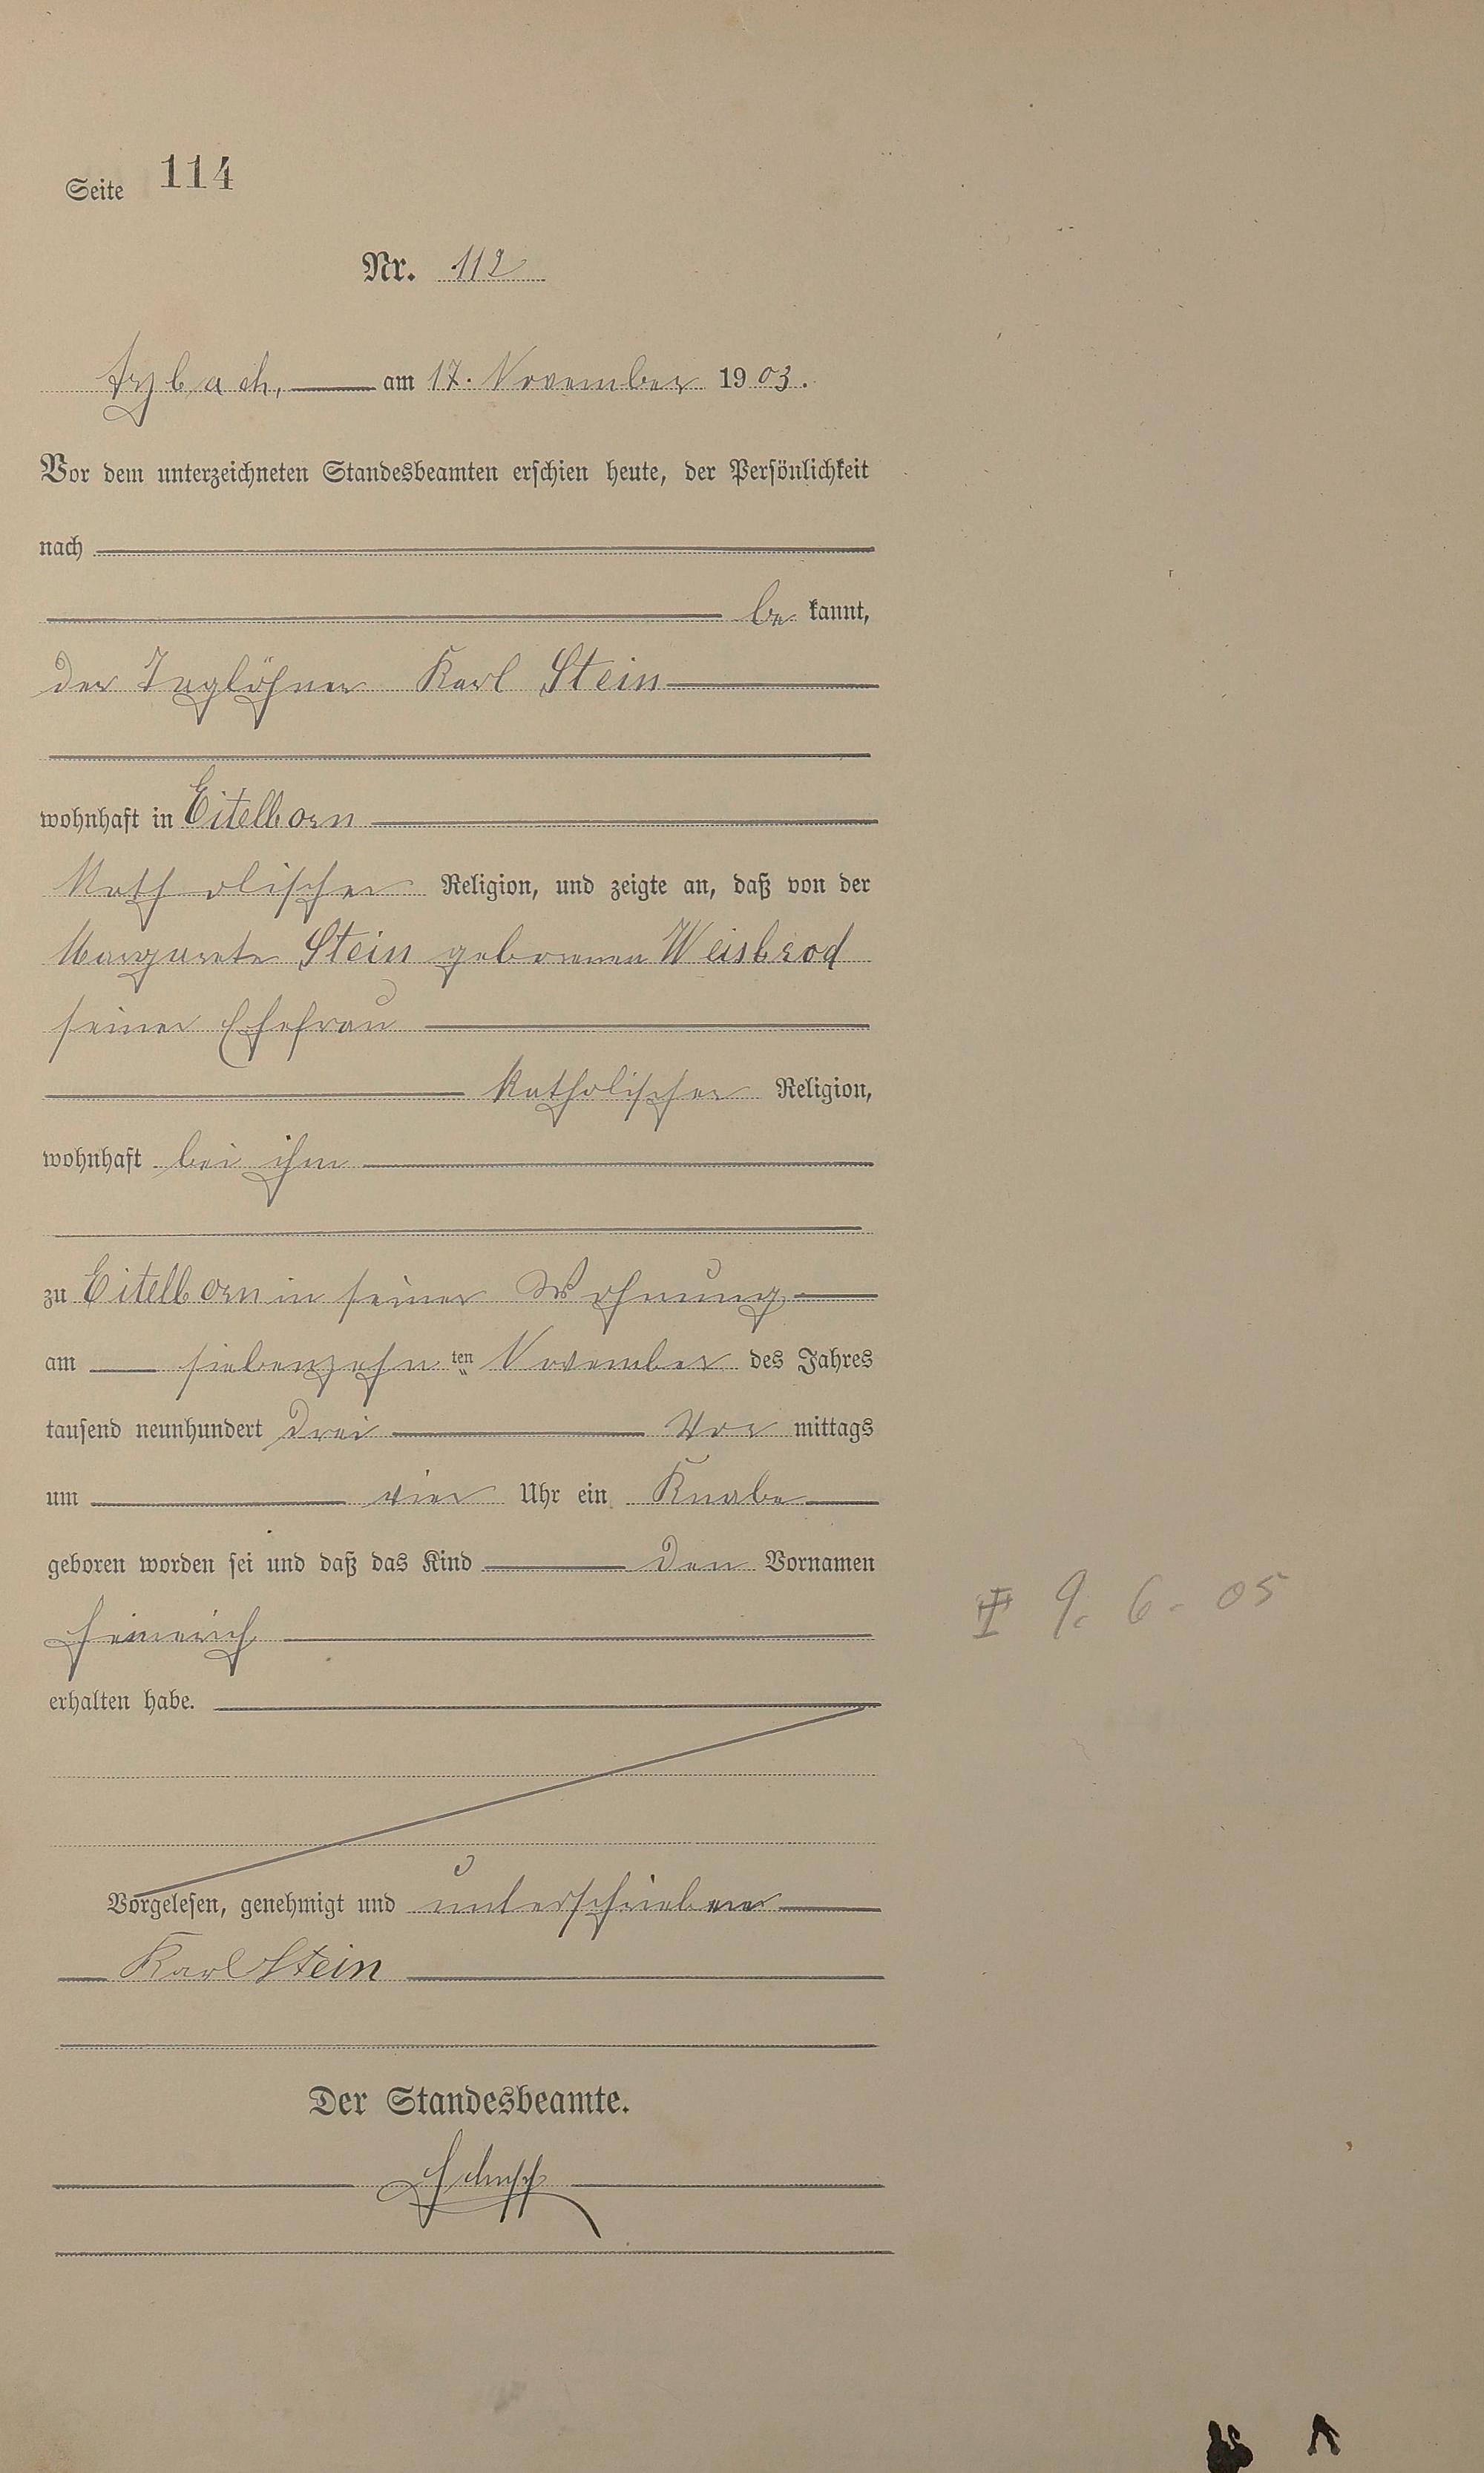 Seite 114
Nr. 112
Arzbach, am 17. November 1903.
Vor dem unterzeichneten Standesbeamten erschien heute, der Persönlichkeit
nach
be kannt,
der Taglöhner Karl Stein
wohnhaft in Eitelborn
katholischer Religion, und zeigte an, daß von der
Margarete Stein geborenen Weisbrod
seiner Ehefrau
katholischer Religion,
wohnhaft bei ihm
zu Eitelborn in seiner Wohnung
am siebenzehn ten November des Jahres
tausend neunhundert drei Vor mittags
um vier Uhr ein Knabe
geboren worden sei und daß das Kind den Vornamen
Heinrich
9. 6. 05
erhalten habe.
Vorgelesen, genehmigt und unterschrieben
Karl Stein
Der Standesbeamte.